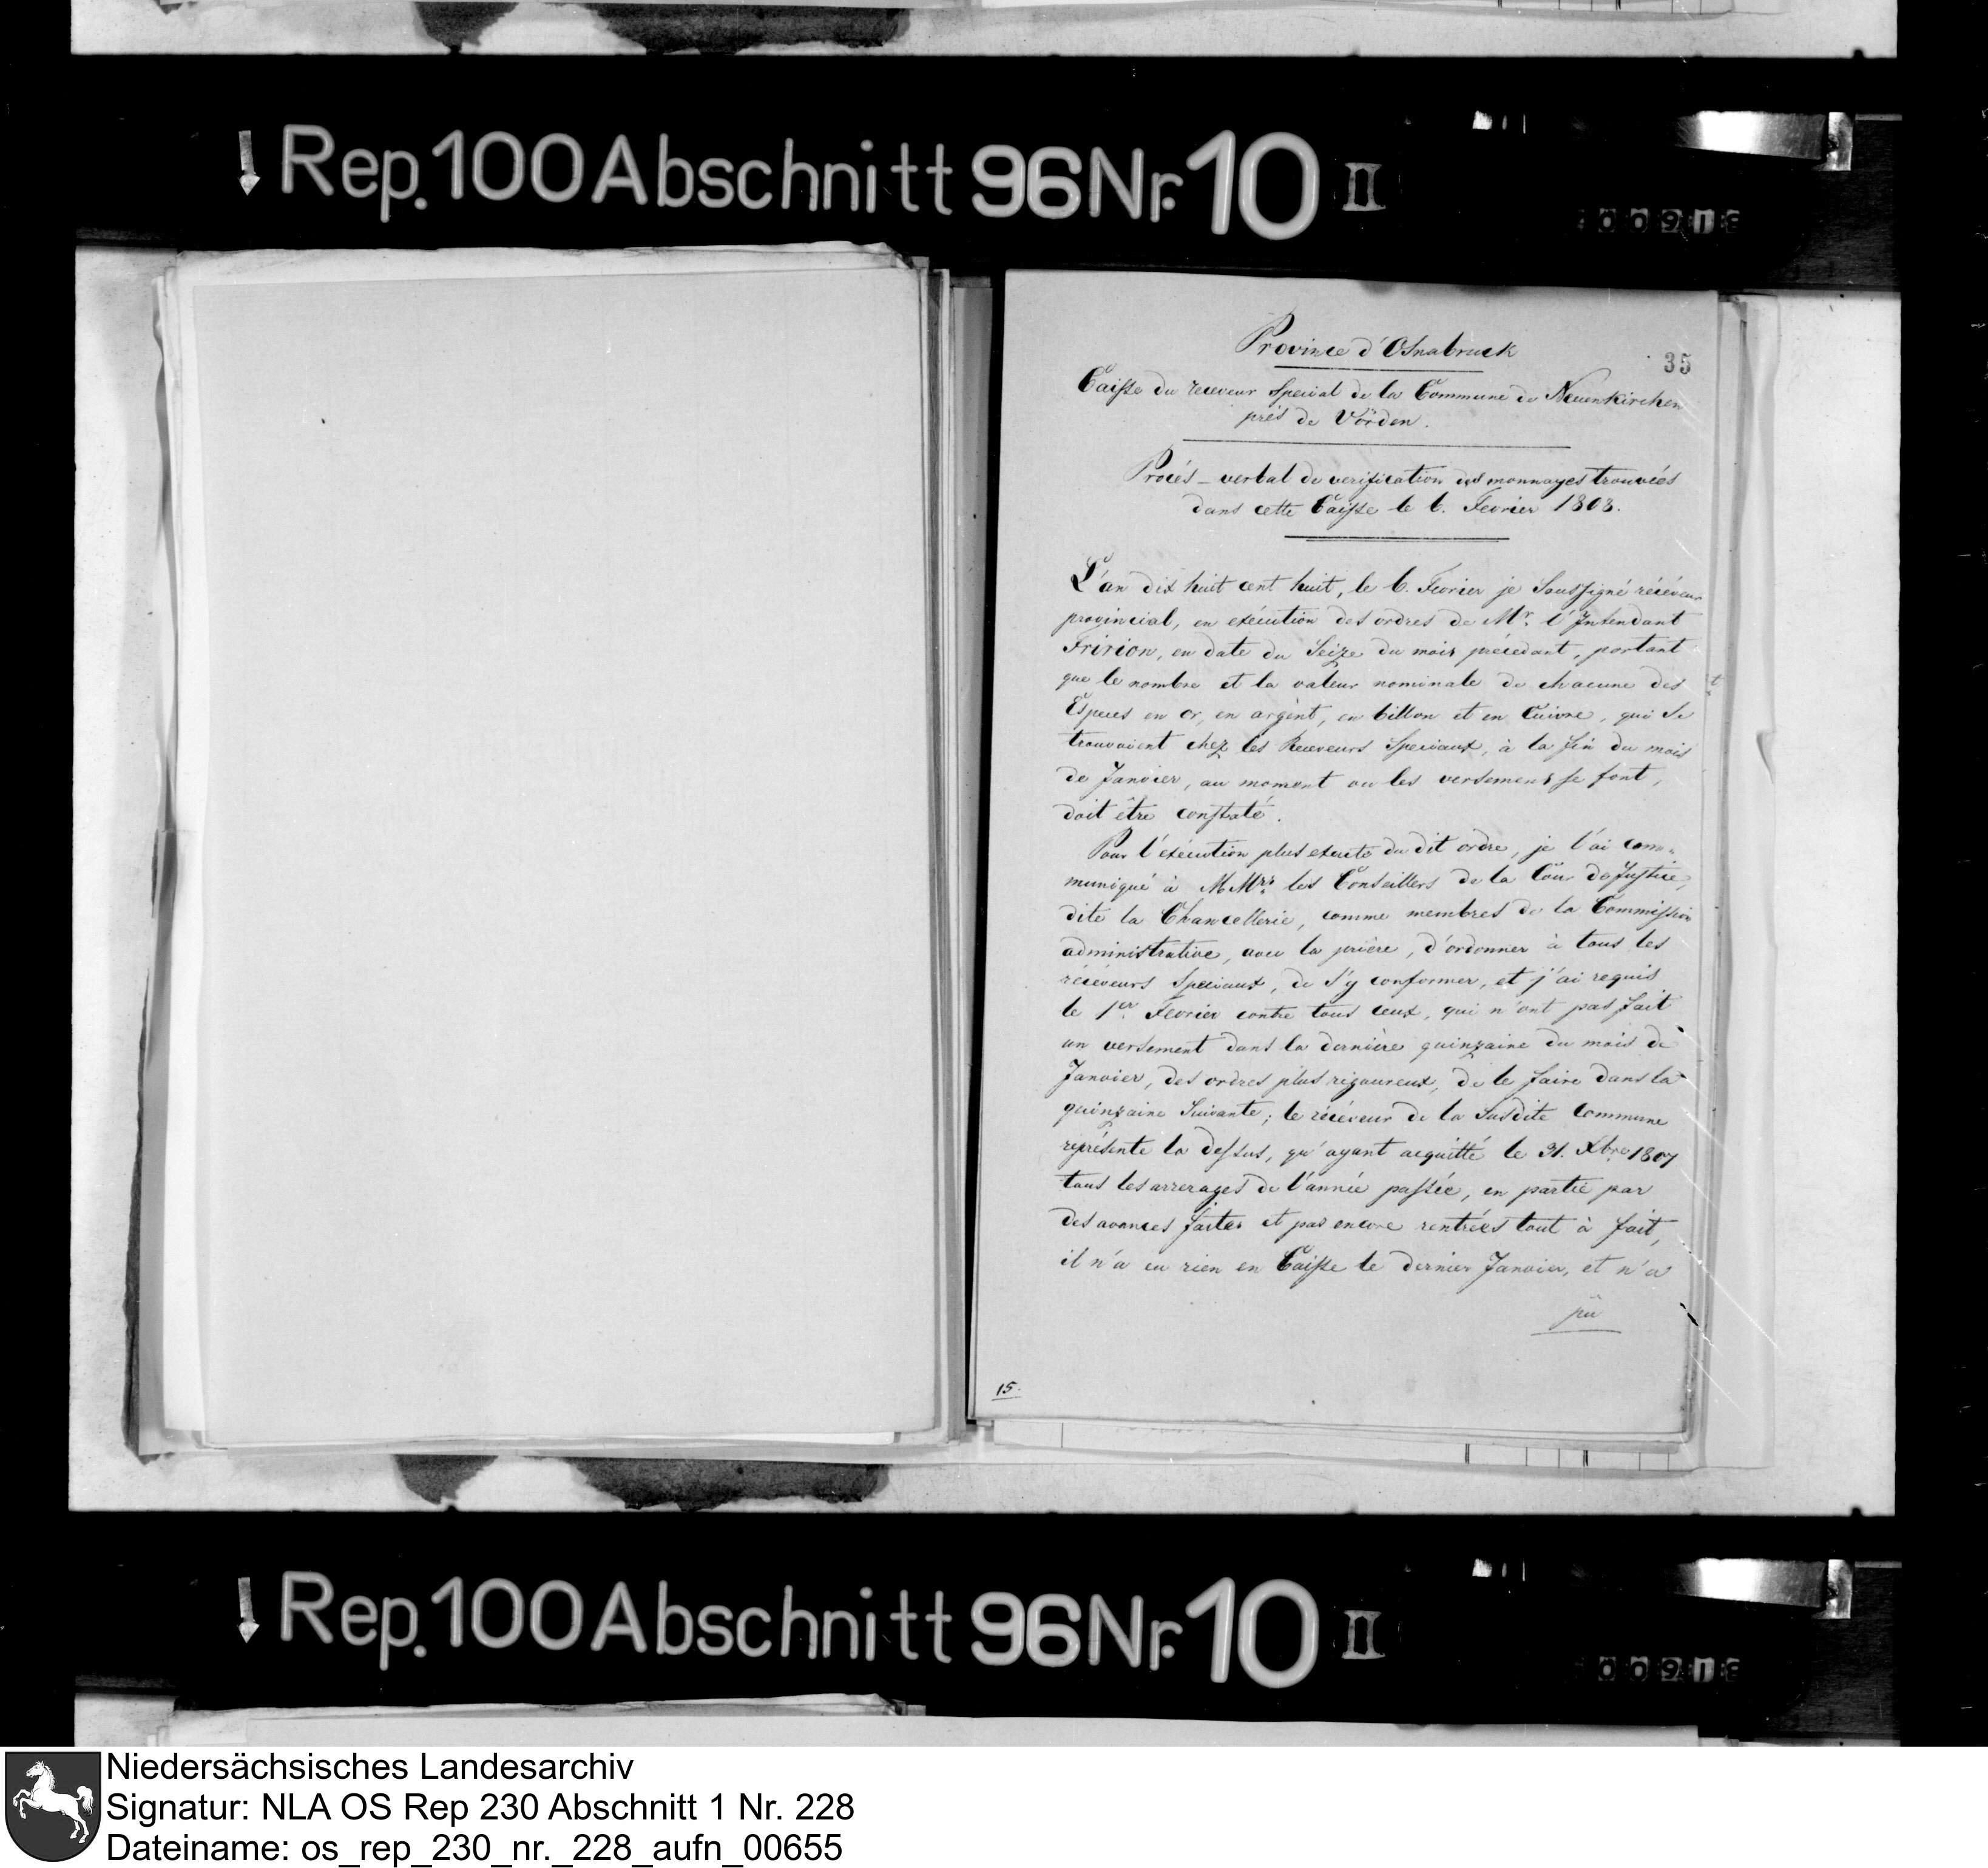 Rep. 100 Abschnitt 96 Nr. 10 II
00918
Province d'Osnabruck
35
Caisse du receveur special de la Commune de Neuenkirchen
près de Vörden.
Procés-verbal de verification des monnayes trouvées
dans cette Caisse le 6. Fevrier 1808.
L'an dix huit cent huit, le 6. Fevrier je Soussigné récéveur
provincial, en exécution des ordres de Mr. l'Intendant
Fririon, en date du Seize du mois précedant, portant
que le nombre et la valeur nominale de chacune des
Especes en or, en argent, en billon et en Cuivre, qui se
trouvoient chez les Receveurs Speciaux, à la fin du mois
de Janvier, au moment ou les versemens se font,
doit être constaté.
Pour l'exécution plus exacte du dit ordre, je l'ai com-
muniqué à MMrs. les Conseillers de la Cour de Justice,
dite la Chancellerie, comme membres de la Commission
administrative, avec la prière, d'ordonner à tous les
récéveurs Speciaux, de s'y conformer, et j'ai requis
le 1er. Fevrier contre tous ceux, qui n'ont pas fait
un versement dans la dernière quinzaine du mois de
Janvier, des ordres plus rigoureux, de le faire dans la
quinzaine Suivante; le récéveur de la Susdite Commune
réprésente la dessus, qu'ayant acquitté le 31. Xbre 1807
tous les arrerages de l'année passée, en partie par
des avances faites et pas encore rentrées tout à fait,
il n'a eu rien en Caisse le dernier Janvier, et n'a
pû
15.
Rep. 100 Abschnitt 96 Nr. 10 II
00918
Niedersächsisches Landesarchiv
Signatur: NLA OS Rep 230 Abschnitt 1 Nr. 228
Dateiname: os_rep_230_nr._228_aufn_00655